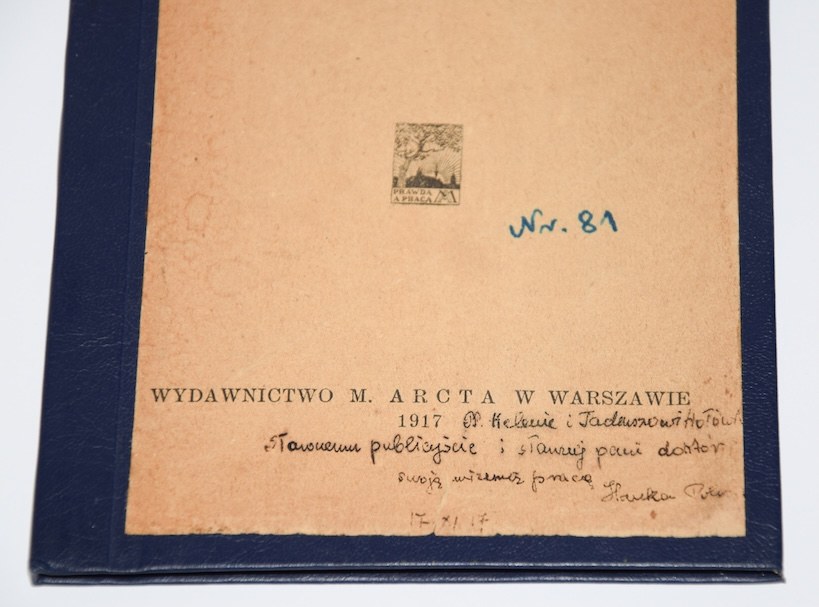 PRAWDA
A PRACA
Nr. 81
WYDAWNICTWO M. ARCTA W WARSZAWIE
1917 PP. Helenie i Tadeuszowi Hołówk
sławnemu publicyście i sławnej pani doktór
swoją mizerną pracę
Hanka
17 XI 17